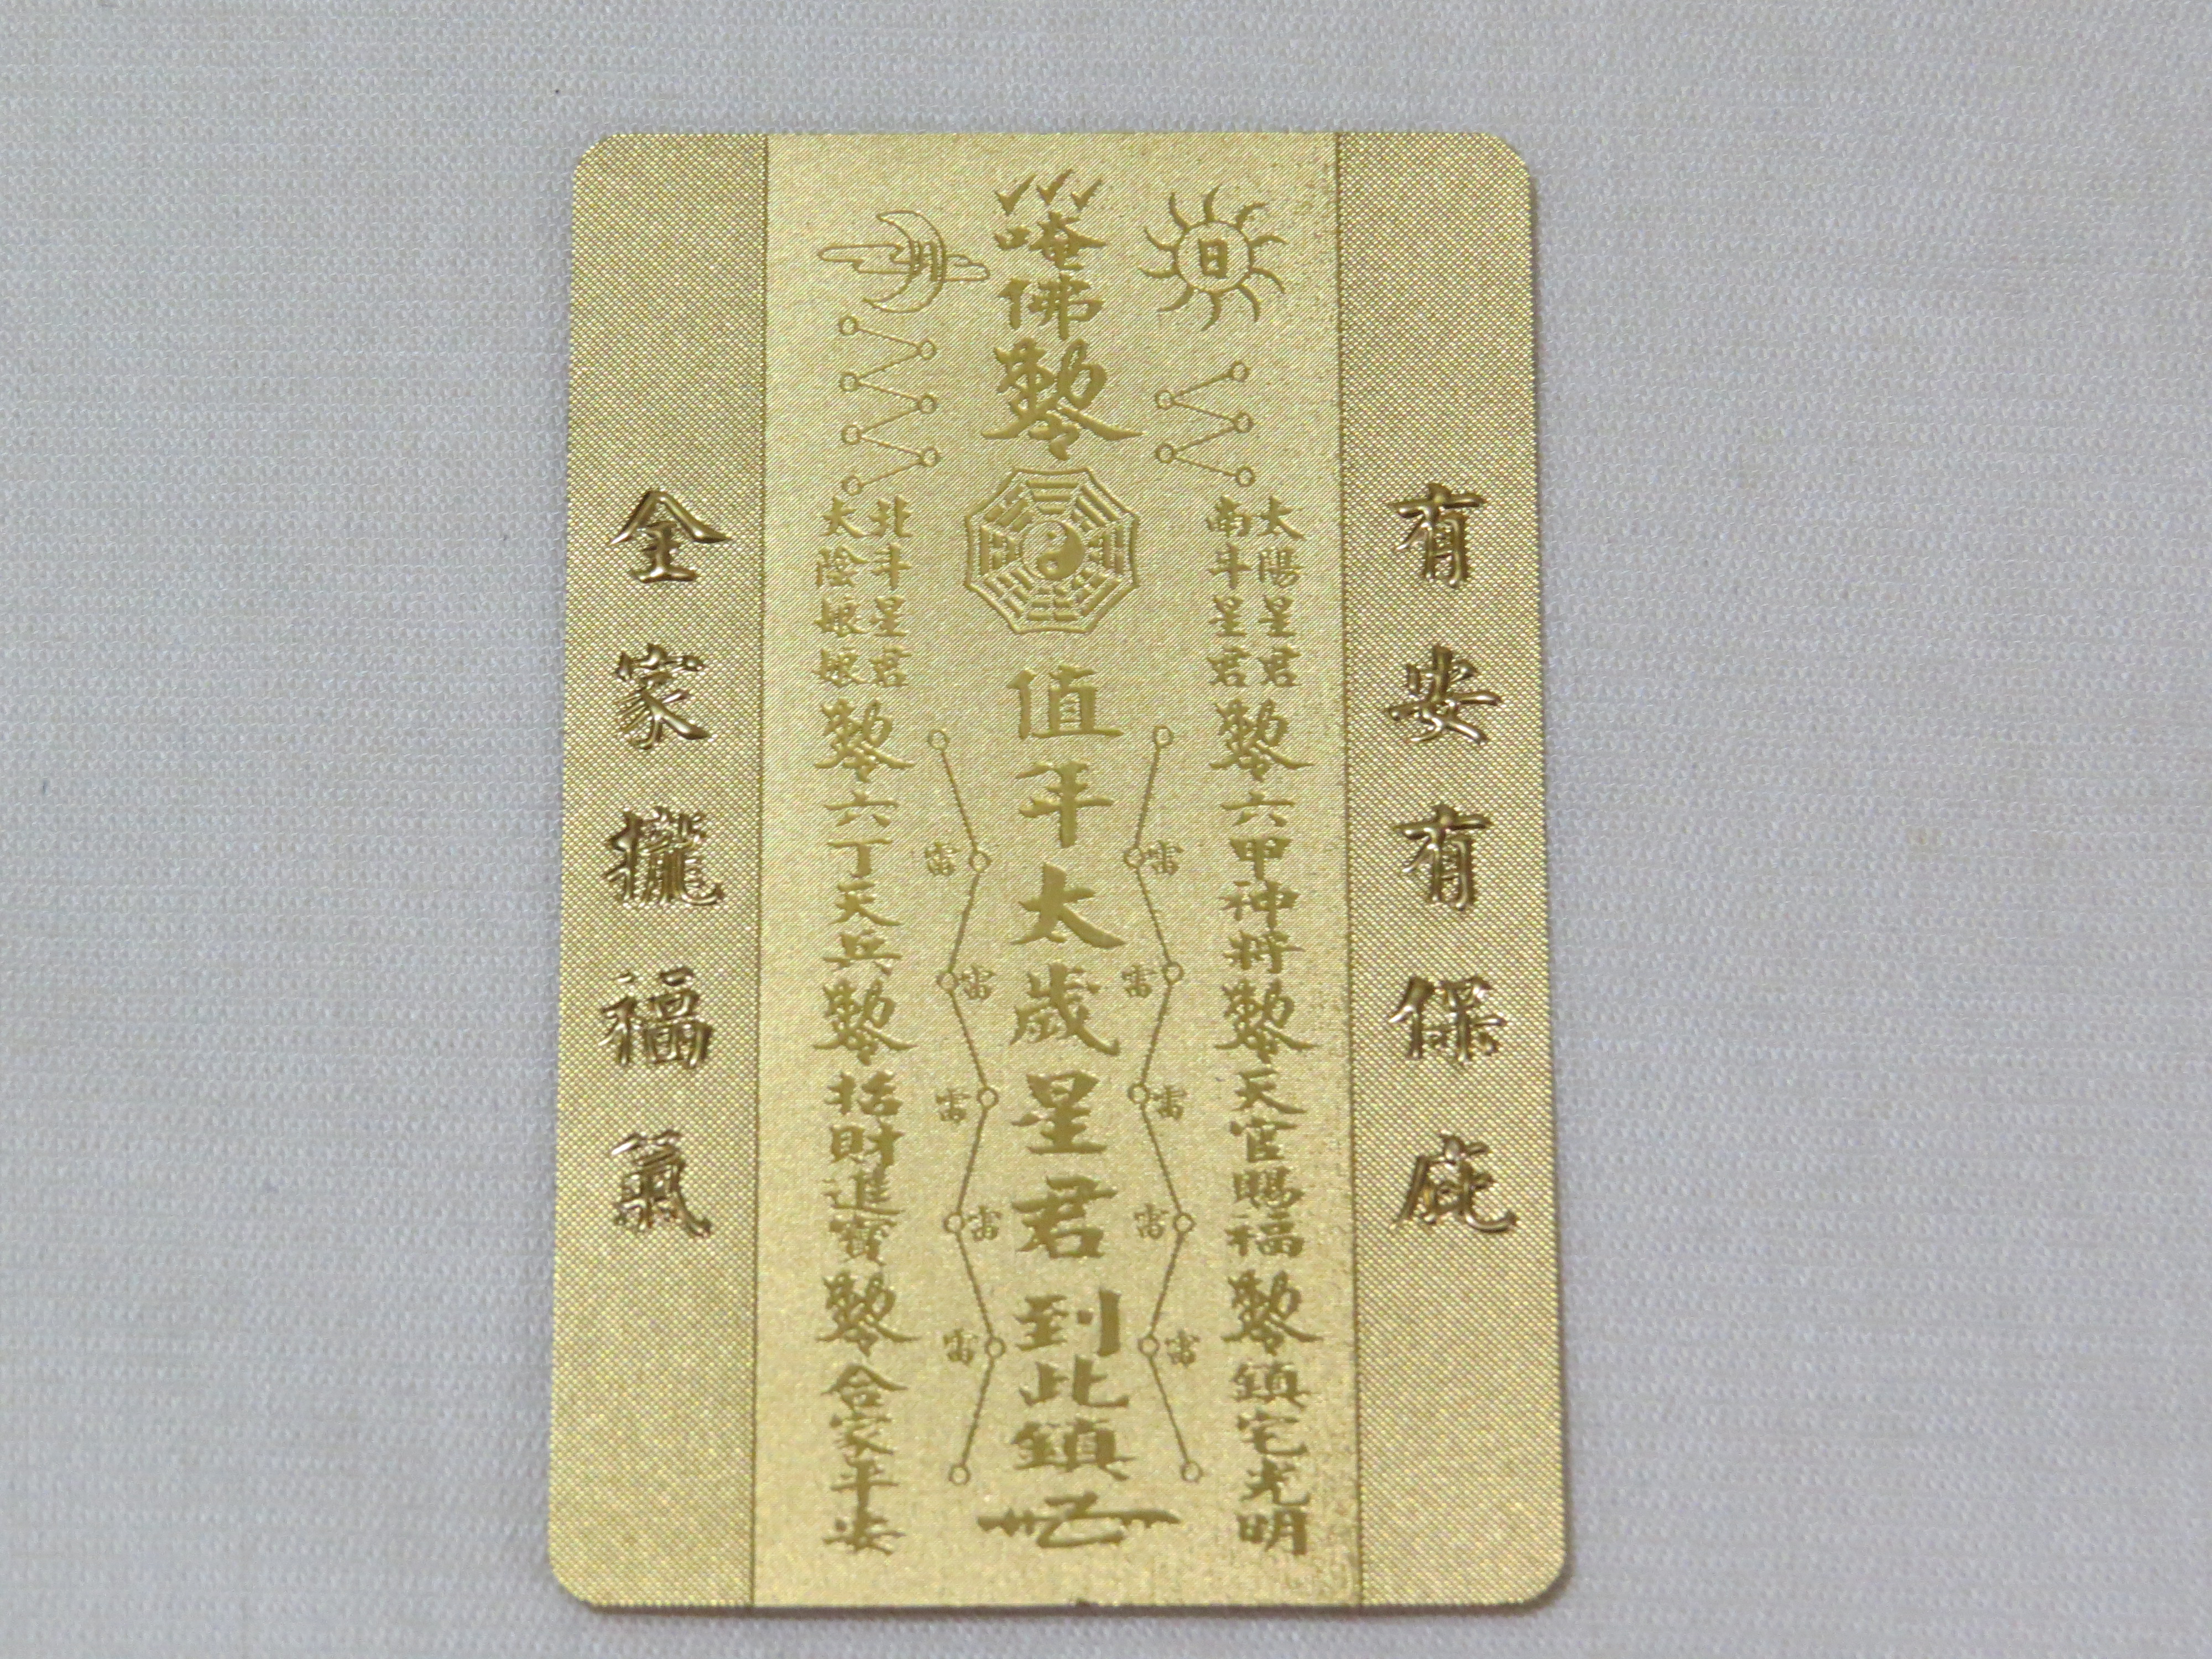 有安有保庇
日
太陽星君
南斗星君
勅令六甲神將勅令天官賜福勅令鎮宅光明
雷
雷
雷
雷
雷
唵佛勅令
值年太歲星君到此鎮
雷
雷
雷
雷
雷
月
北斗星君
太陰娘娘
勅令六丁天兵勅令招財進寶勅令合家平安
全家攏福氣